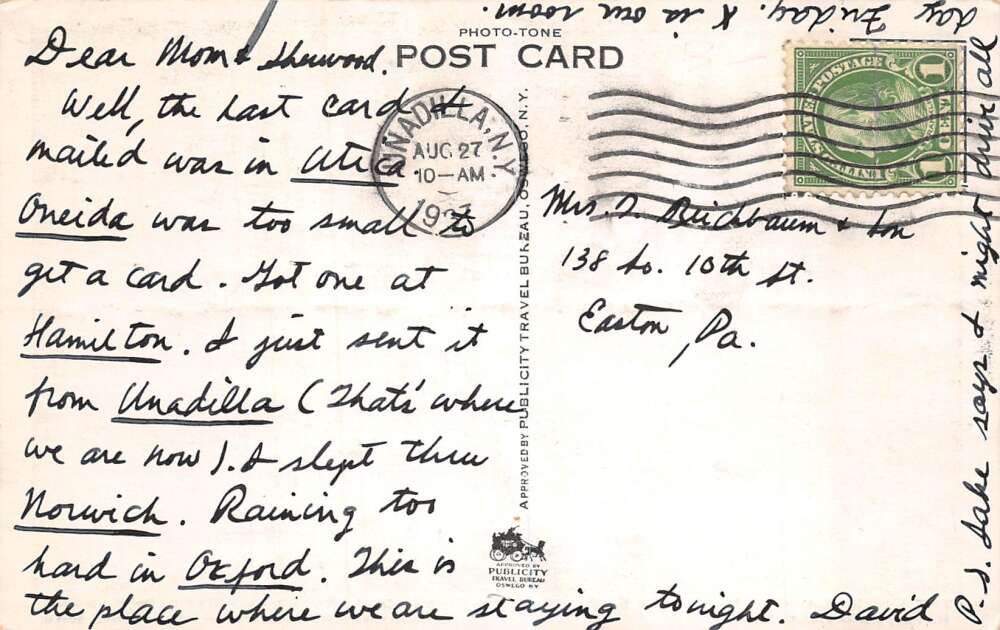 PHOTO-TONE
POST CARD
Dear Mom & Sherwood.
Well, the last card I
mailed was in Utica
Oneida was too small to
get a card. Got one at
Hamilton. I just sent it
from Unadilla (That's where
we are now). I slept thru
Norwich. Raining too
hard in Oxford. This is
the place where we are staying tonight. David
P.S. Jake says I might drive all
day Friday. X is our room.
UNADILLA, N.Y.
AUG 27
10-AM
U.S. POSTAGE
1
1
Mrs. I. Reichbaum & Son
138 So. 10th St.
Easton, Pa.
APPROVED BY PUBLICITY TRAVEL BUREAU, OSWEGO, N.Y.
APPROVED BY
PUBLICITY
TRAVEL BUREAU
OSWEGO NY